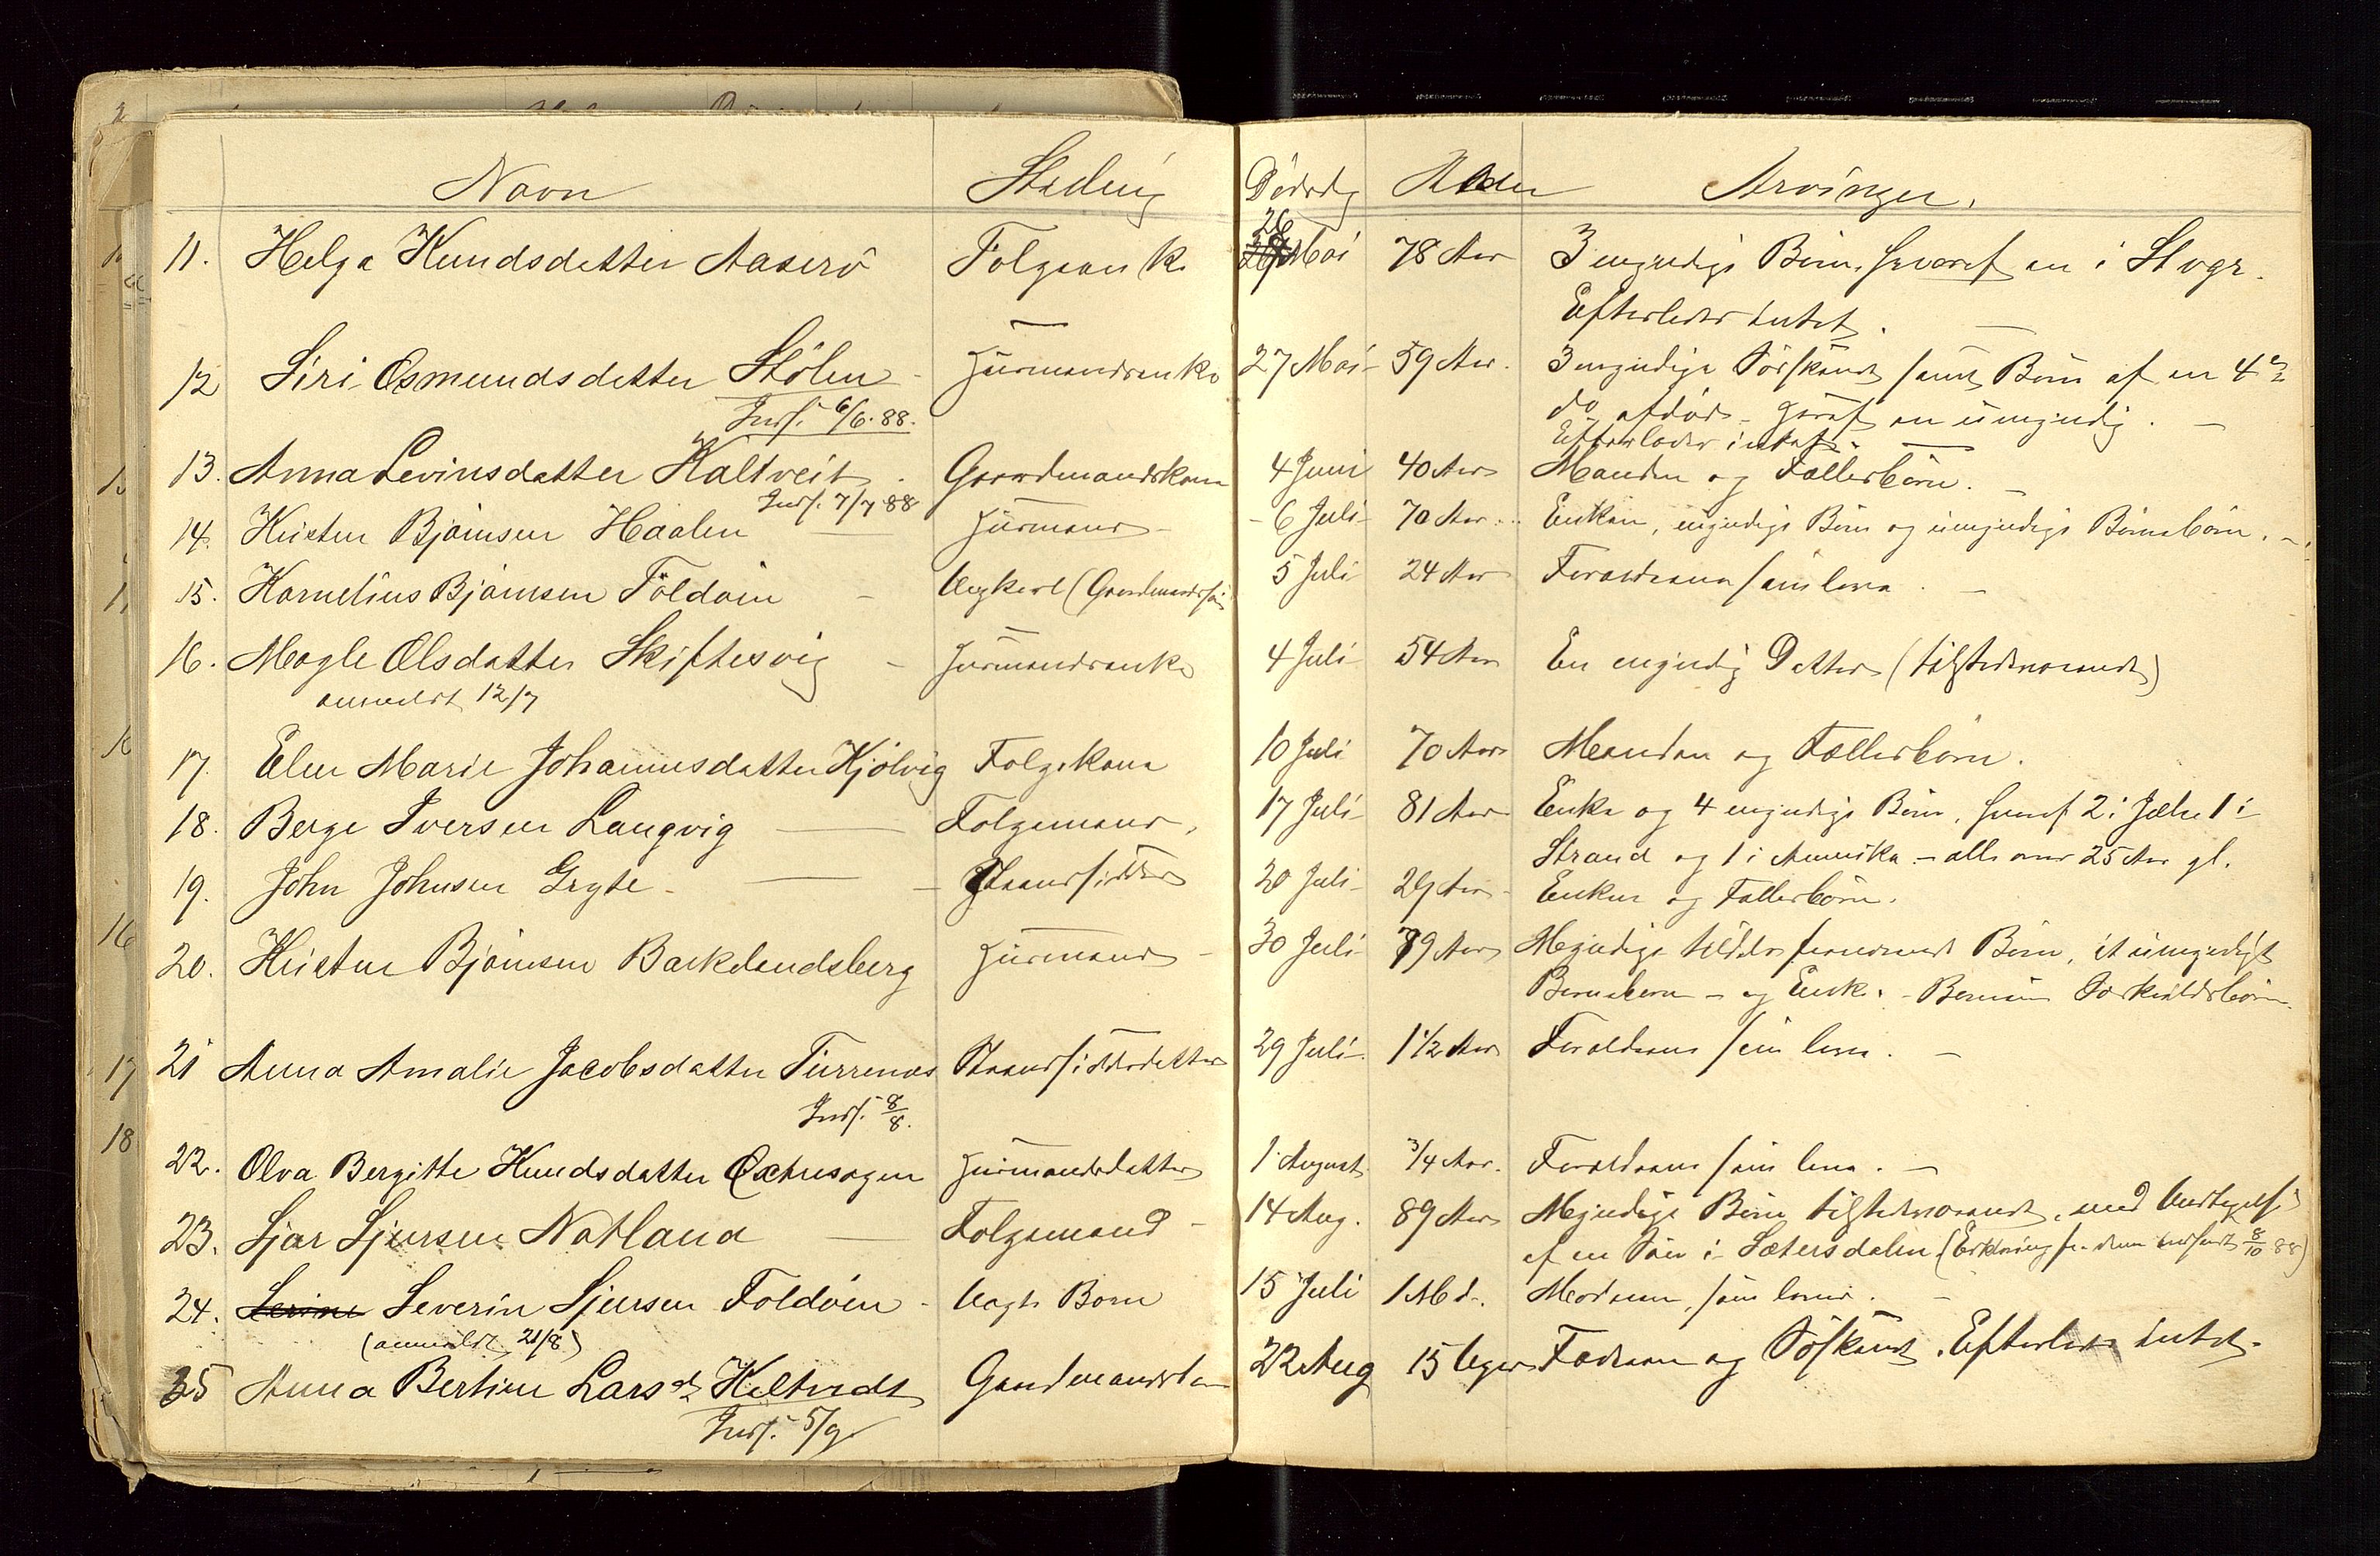 Navn Stilling Dødsdg Alder Arvinger.
11. Helga Knudsdatter Aaserö Folgeenk 26 Mai 78 Aar 3 myndige Börn, hvoraf en i Stvgr.
Efterlader intet. —
12 Siri Osmundsdatter Stölen Huusmandsenke 27 Mai 59 Aar. 3 myndige Söskende samt Börn af en 4de
do afdöd - hvoraf en umyndig. —
Indf. 6/6.88. Efterlader intet. —
13. Anna Levinsdatter Kaltveit. Gaardmandskone 4 Juni 40 Aar Manden og Fællesbörn. —
Indf. 7/7 88
14. Kristen Björnsen Haalen — Huusmand - 6 Juli 70 Aar. Enken, myndige Börn og umyndige Börnebörn. —
15. Kornelius Bjömsen Foldöen — Ungkarl (Gaardmandssön 5 Juli 24 Aar Forældrene som leve. —
16. Magle Olsdatter Skiftesvig — Huusmandsenke 4 Juli 54 Aar En myndig Datter (tilstedeværende)
anmeldt 12/7
17. Elen Marie Johannesdatter Kjölvig Folgekone 10 Juli 70 Aar Manden og Fællesbörn.
18. Berge Iversen Langvig — Folgemand, 17 Juli 81 Aar Enke og 4 myndige Börn, hvoraf 2 i Jælse 1 i
Strand og 1 i Amerika - alle over 25 Aar gl.
19. John Johnsen Gryte - — Strandsidder 20 Juli 29 Aar Enken og Fællesbörn.
20. Kristen Bjömsen Barkelandsberg Huusmand - 30 Juli 79 Aar Myndige tilstedeværende Börn, et umyndigt
Barnebarn - og Enke.
21 Anna Amalie Jacobsdatter Turrenæs Strandsidderdatter 29 Juli 1 1/2 Aar Forældrene som leve. —
Indf. 8/8.
22. Olva Bergitte Knudsdatter Huusmandsdatter 1 August 3/4 Aar. Forældrene som leve. —
23. Sjur Sjursen Natland — Folgemand - 14 Aug. 89 Aar Myndige Börn tilstedeværende, med Undtagelse
af en Sön i Sætersdalen (Erklæring fra denne indsendt 8/10 88)
24. Levine Severin Sjursen Foldöen - Uægte Barn 15 Juli 1 Md. Moderen, som lever. —
(anmeldt 21/8)
25 Anna Bertine Larsdt Kaltvedt Gaardmandsba 22 Aug 15 Uger Forældrene og Söskende. Efterlader intet.
Indf. 5/9